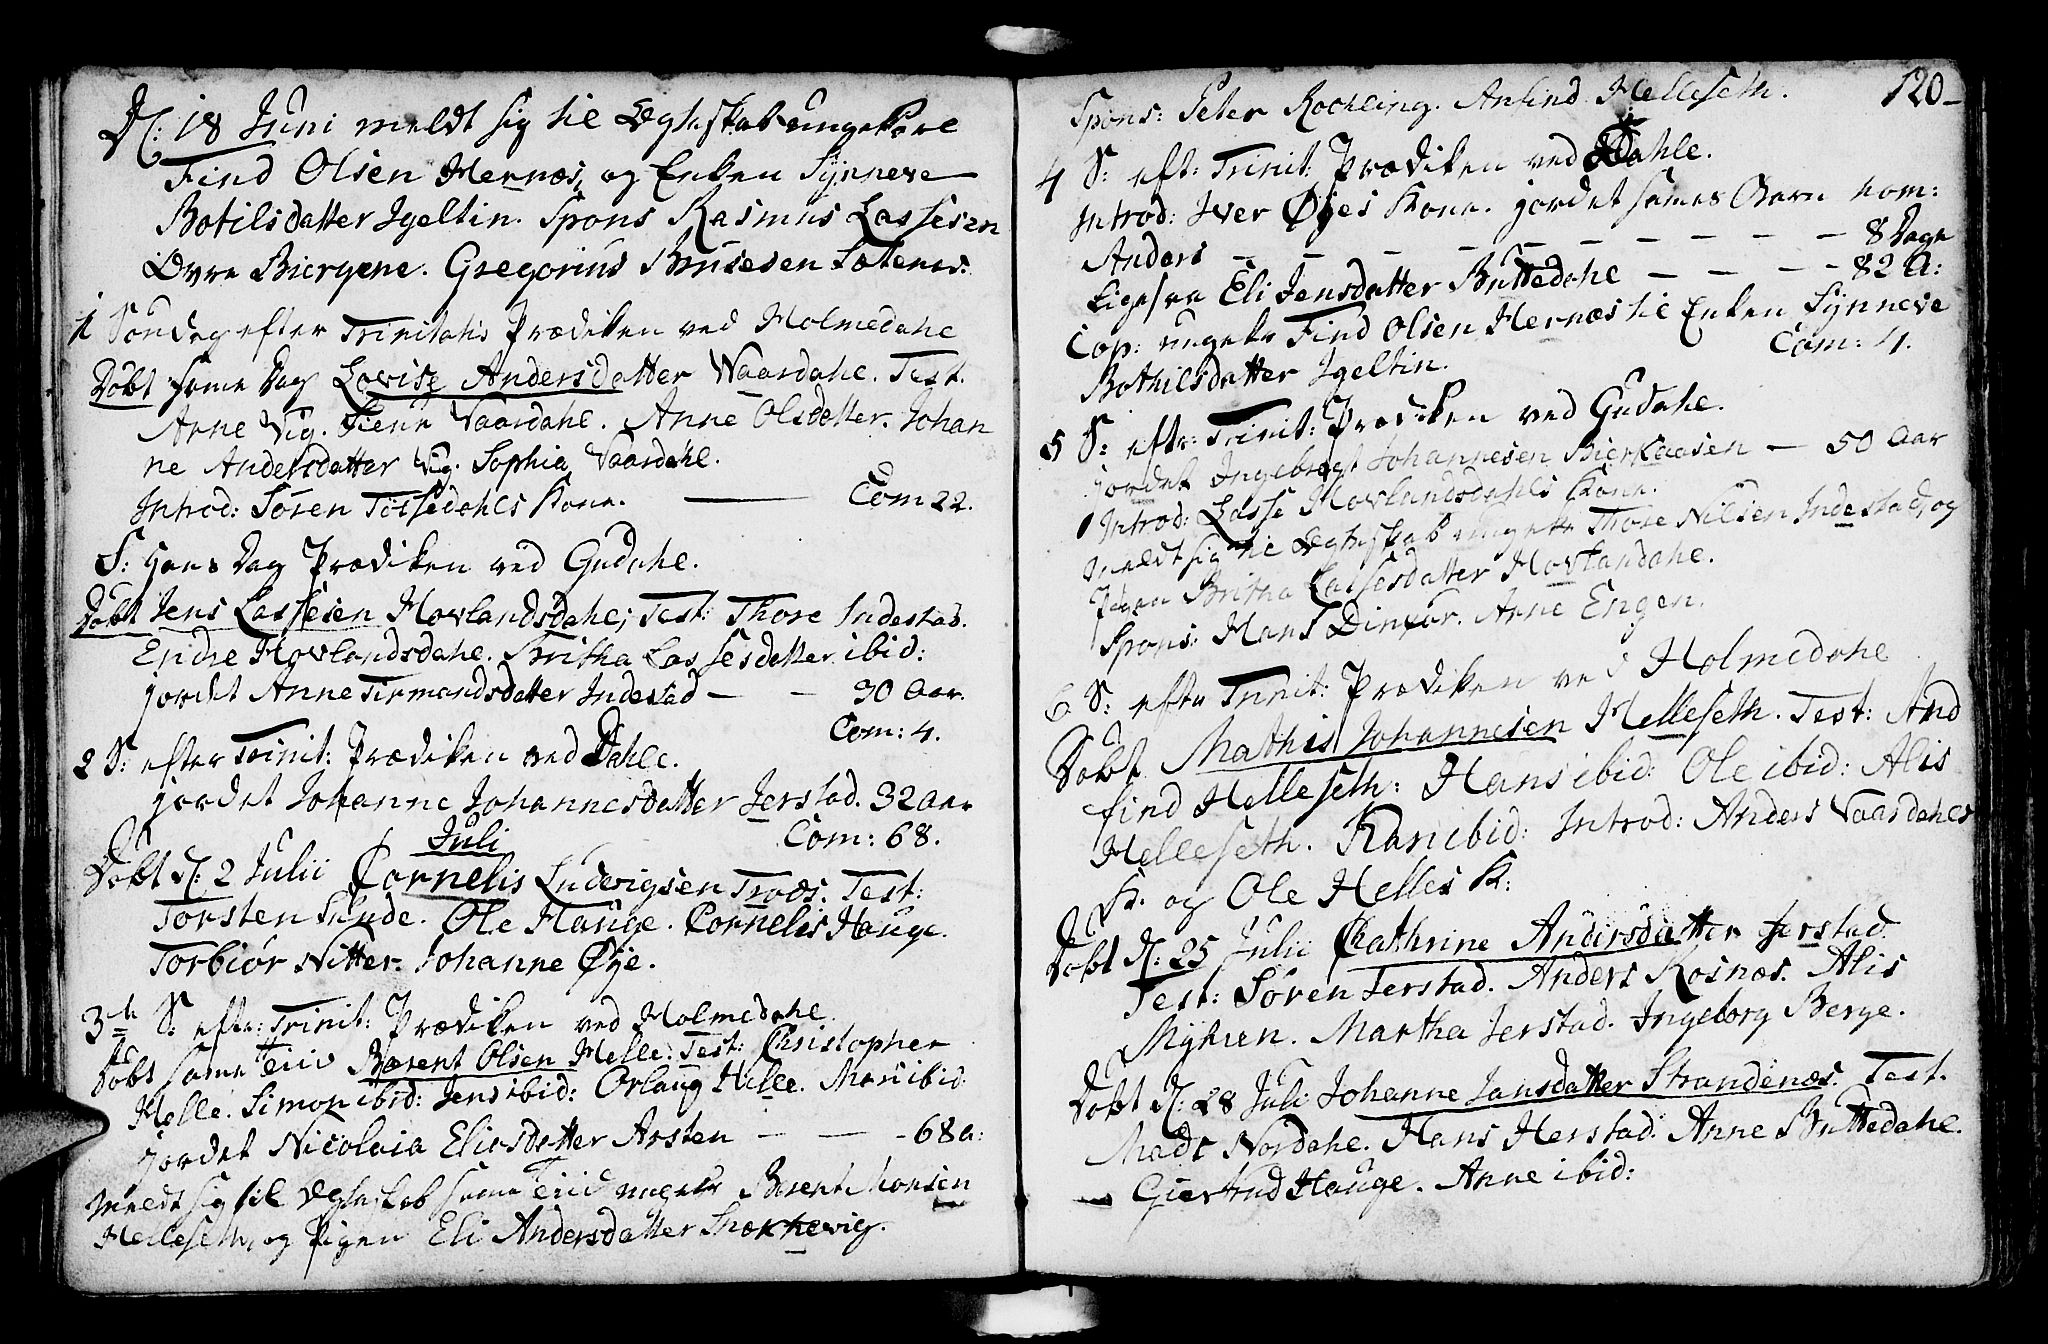 D: 18 Juni meldt sig til Ægteskab ungekare
Find Olsen Hernæs, og Enken Synneve
Botilsdatter Igeltin. Spons Rasmus Lassesen
Dyre Biergene. Gregorius Brusesen Sætenes.
1 Søndag efter Trinitatis Prædiken ved Holmedahl
Døbt same Dag Lovise Andersdatter Waardahl. Test.
Arne Vig. Waardahl. Anne Olsdatter. Johan
ne Andersdatter Vig. Sophia Vaardahl.
Introd: Sören Tössedahls Kone. Com 22.
S: Hans Dag Prædiken ved Gudahl.
Døbt Jens Lassesen Hovlandsdahl; Test: Thore Indestad.
Endre Hovlandsdahl. Britha Lassesdatter ibid:
jordet Anne Tirmandsdatter Indestad — — 30 Aar.
Com: 4.
2 S: efter Trinit: Prædiken ved Dahle.
jordet Johanne Johannesdatter Jerstad. 32 Aar
Juli Com: 68.
Døbt d: 2 Julii Cornelis Ludvigsen Troæs. Test:
Torsten Sunde. Ole Hauge. Cornelis Hauge.
Torbiör Nitter. Johanne Øye.
3de S: efter: Trinit: Prædiken ved Holmedahl.
Døbt same Tiid Bærent Olsen Helle. Test: Christopher
Helle. Simon ibid: Jens ibid: Orlaug Hille. Mari ibid:
jordet Nicolaia Eliesdatter Arsten — — - 68 a:
meldt sig til Ægteskab same Tiid ungekr Berent Monsen
Helleseth, og Pigen Eli Andersdatter Snarhevig.
120
Spons: Peter Rochling. Anfind Helleseth.
4 S: eft: Trinit: Prædiken ved Dahle.
Introd: Iver Øyes Kone. jordet sames Barn nom:
Anders — — — — — — — — — 8 Dage
Ligesaa Eli Jensdatter Buttedahl — — — - 82 A:
Cop: ungekr Find Olsen Hernæs til Enken Synneve
Bothilsdatter Igeltin. Com: 4.
5 S: eftr: Trinit: Prædiken ved Gudahl.
jordet Ingebregt Johannesen Bierkaasen — 50 Aar
Introd: Lasse Hovlandsdahls Kone.
meldt sig til Ægteskab ungekr Thore Nilsen Indestad, og
Pigen Britha Lassesdatter Hovlandahl.
Spons: Hans Dinxör. Arne Engen.
6 S: eftr Trinit: Prædiken ved Holmedahl
Døbt Mathis Johannesen Helleseth. Test: And
find Helleseth: Hans ibid: Ole ibid: Alis
Helleseth. Kari ibid: Introd: Anders Vaardahls
K. og Ole Helles K:
Døbt d: 25 Julii Chathrine Andersdatter Jerstad.
Test: Sören Jerstad. Anders Rosnæs. Alis
Myhren. Martha Jerstad. Ingeborg Berge.
Døbt d: 28 Juli Johanne Jansdatter Strandenæs. Test.
Mads Nordahl. Hans Herstad. Anne Buttedahl.
Giertrud Hauge. Anne ibid: